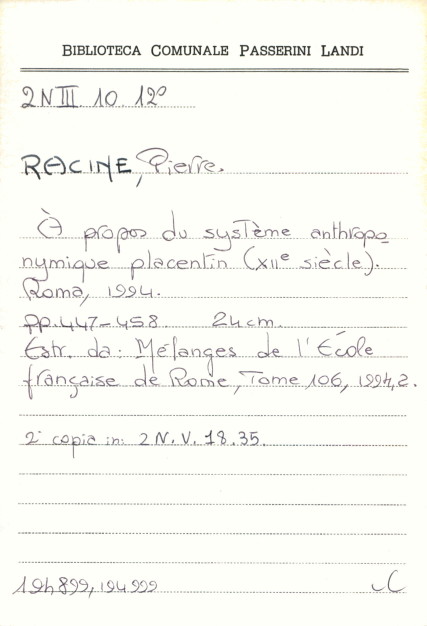 BIBLIOTECA COMUNALE PASSERINI LANDI
2 N III. 10. 12°
RACINE, Pierre.
À propos du système anthropo
nymique placentin (XIIe siècle).
Roma, 1994.
pp. 447-458. 24 cm.
Estr. da: Mélanges de l'École
française de Rome, Tome 106, 1994, 2.
2ª copia in: 2 N. V. 18.35.
194899, 194999